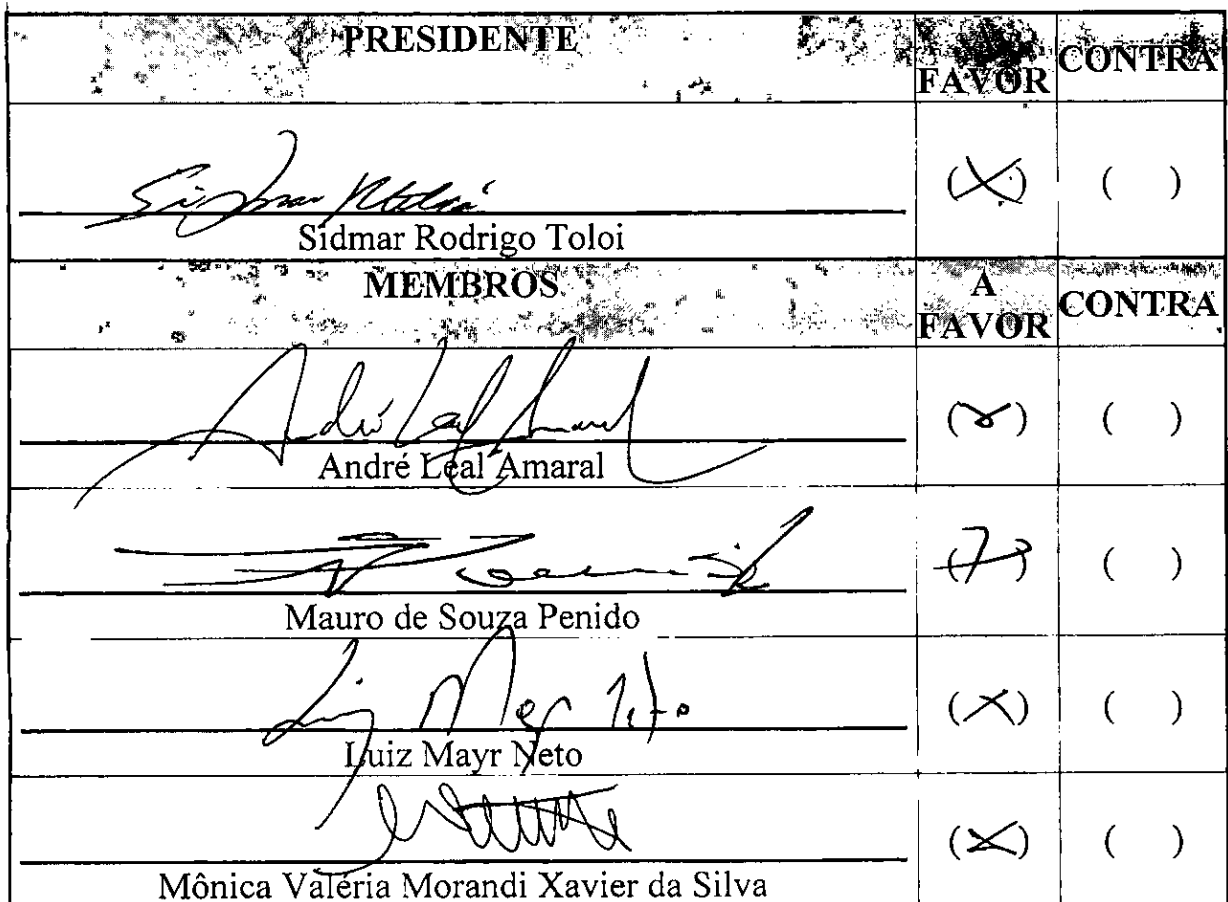 PRESIDENTE
FAVOR CONTRA
(X) ( )
Sidmar Rodrigo Toloi
MEMBROS A FAVOR CONTRA
André Leal Amaral
(X) ( )
André Leal Amaral
(X) ( )
Mauro de Souza Penido
Luiz Mayr Neto
(X) ( )
Luiz Mayr Neto
(X) ( )
Mônica Valéria Morandi Xavier da Silva